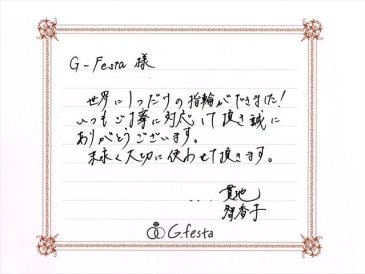 G-Festa 様
世界に1つだけの指輪ができました!
いつもご丁寧に対応して頂き誠に
ありがとうございます。
末永く大切に使わせて頂きます。
智香子
G.festa